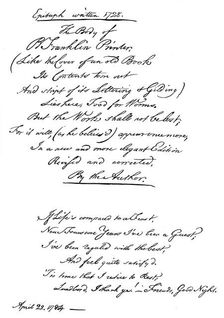 Epitaph written 1728.
The Body of
B Franklin Printer,
(Like the Cover of an old Book
Its Contents torn out
And stript of its Lettering & Gilding)
Lies here, Food for Worms.
But the Work shall not be lost;
For it will, (as he believ'd) appear once more,
In a new and more elegant Edition
Revised and corrected,
By the Author.
If Life's compared to a Feast,
Near Fourscore Years I've been a Guest,
I've been regaled with the best,
And feel quite satisfy'd.
'Tis time that I retire to Rest;
Landlord, I thank ye! — Friends, Good Night.
April 22, 1784 —